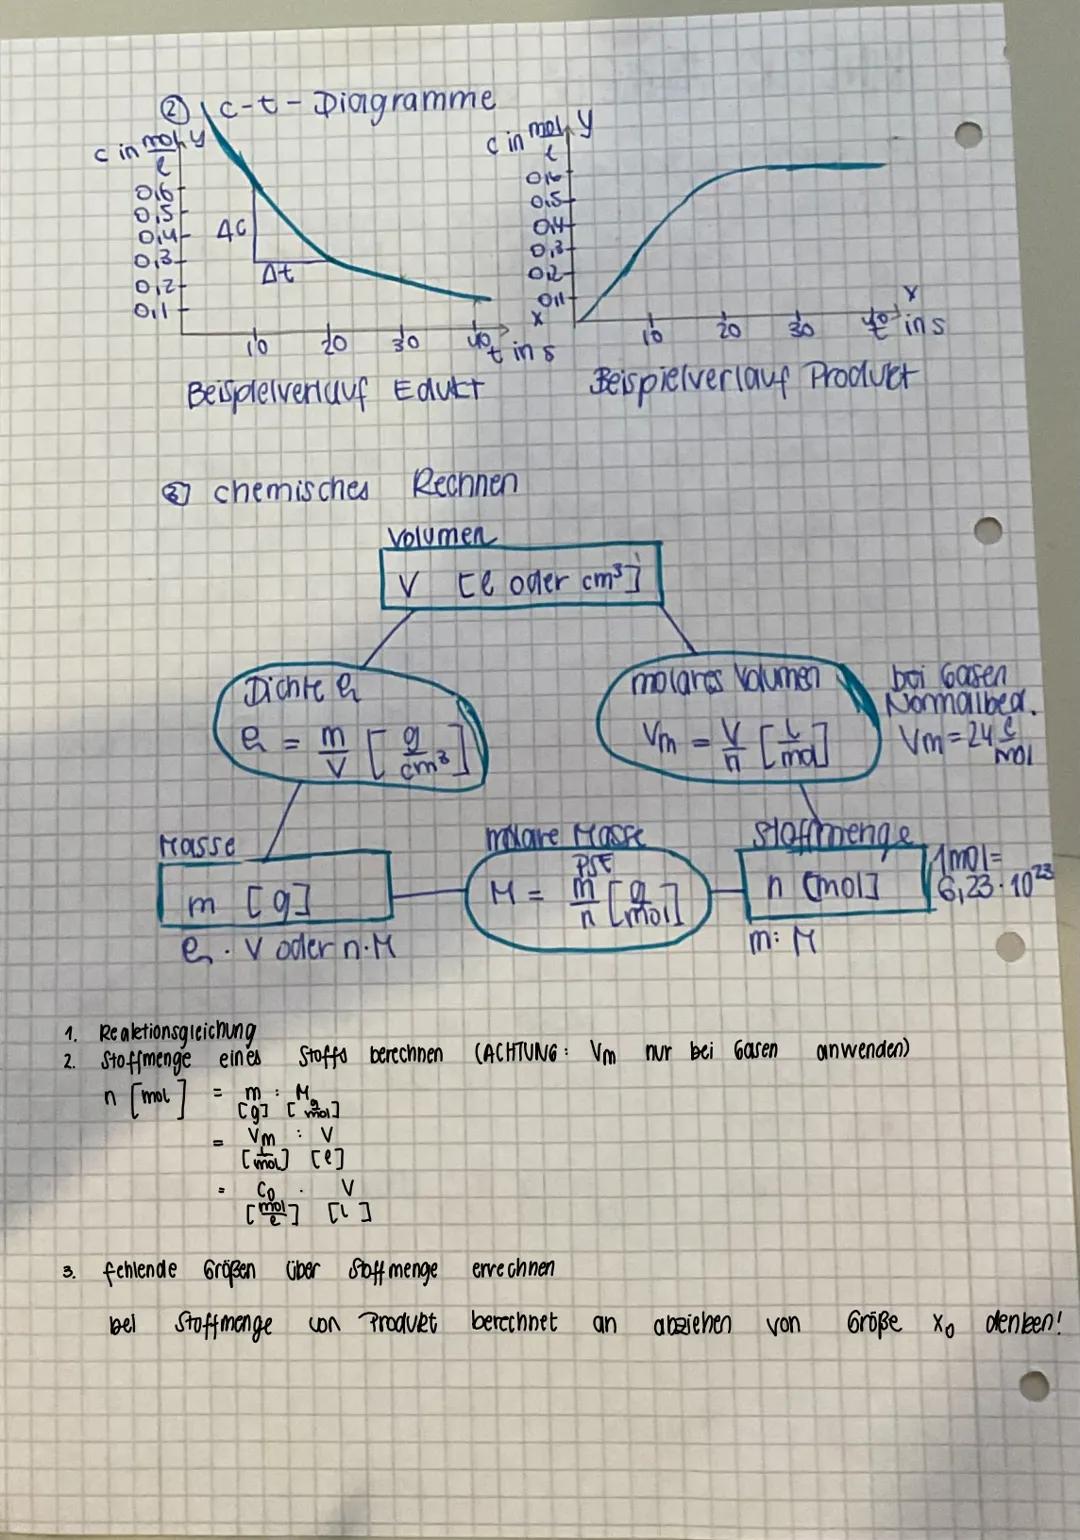 ② c-t-Diagramme
c in mol/l y
0,6
0,5
0,4
0,3
0,2
0,1
Δc
Δt
10 20 30 40 x
t in s
Beispielverlauf Edukt
c in mol/l y
0,6
0,5
0,4
0,3
0,2
0,1
10 20 30 40 x
t in s
Beispielverlauf Produkt
③ chemisches Rechnen
Volumen
V [l oder cm³]
Dichte ρ
ρ = m/V [g/cm³]
molares Volumen
Vm = V/n [l/mol]
bei Gasen
Normalbed.
Vm = 24 l/mol
Masse
m [g]
ρ · V oder n·M
molare Masse
PSE
M = m/n [g/mol]
Stoffmenge
n [mol]
m : M
1mol=
6,23·10²³
1. Reaktionsgleichung
2. Stoffmenge eines Stoffs berechnen (ACHTUNG: Vm nur bei Gasen anwenden)
n [mol] = m : M
[g] [g/mol]
= Vm : V
[l/mol] [l]
= c₀ · V
[mol/l] [l]
3. fehlende Größen über Stoffmenge errechnen
bei Stoffmenge von Produkt berechnet an abziehen von Größe x₀ denken!